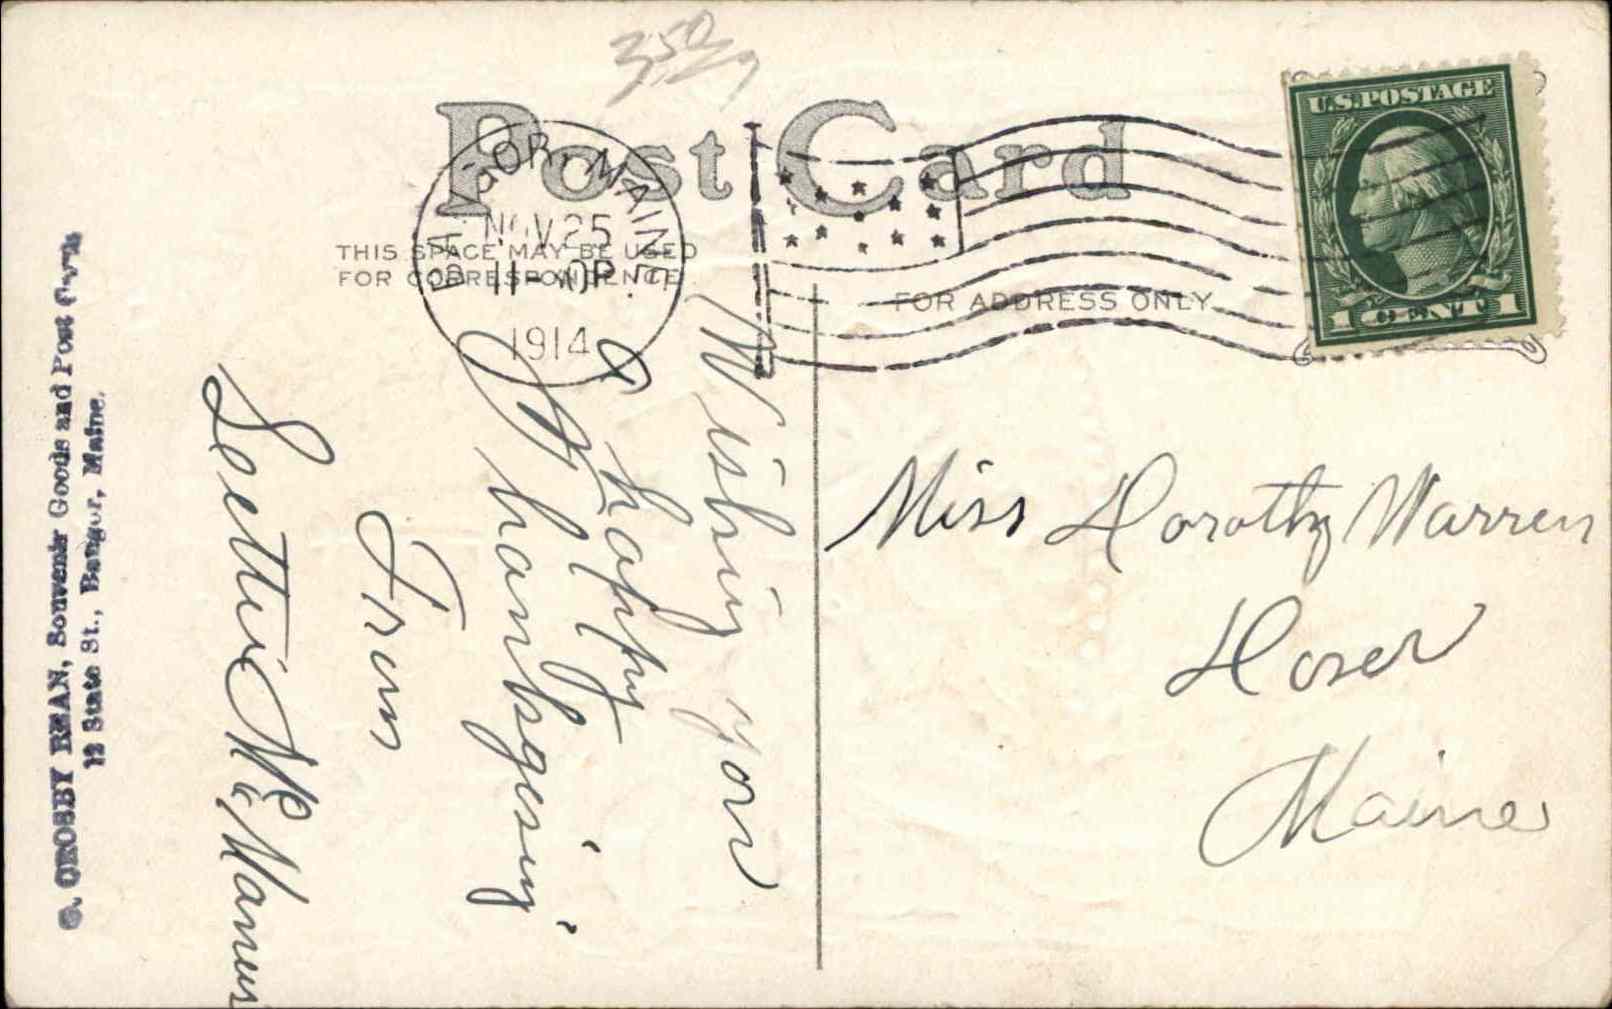 Post Card
BANGOR, MAINE
NOV 25
1914
THIS SPACE MAY BE USED
FOR CORRESPONDENCE
FOR ADDRESS ONLY
U.S.POSTAGE
1 CENT 1
Wishing you
a happy
Thanksgiving
From
Miss Dorothy Warren
Dover
Maine
CROSBY BEAN, Souvenir Goods and Post Cards
12 State St., Bangor, Maine.